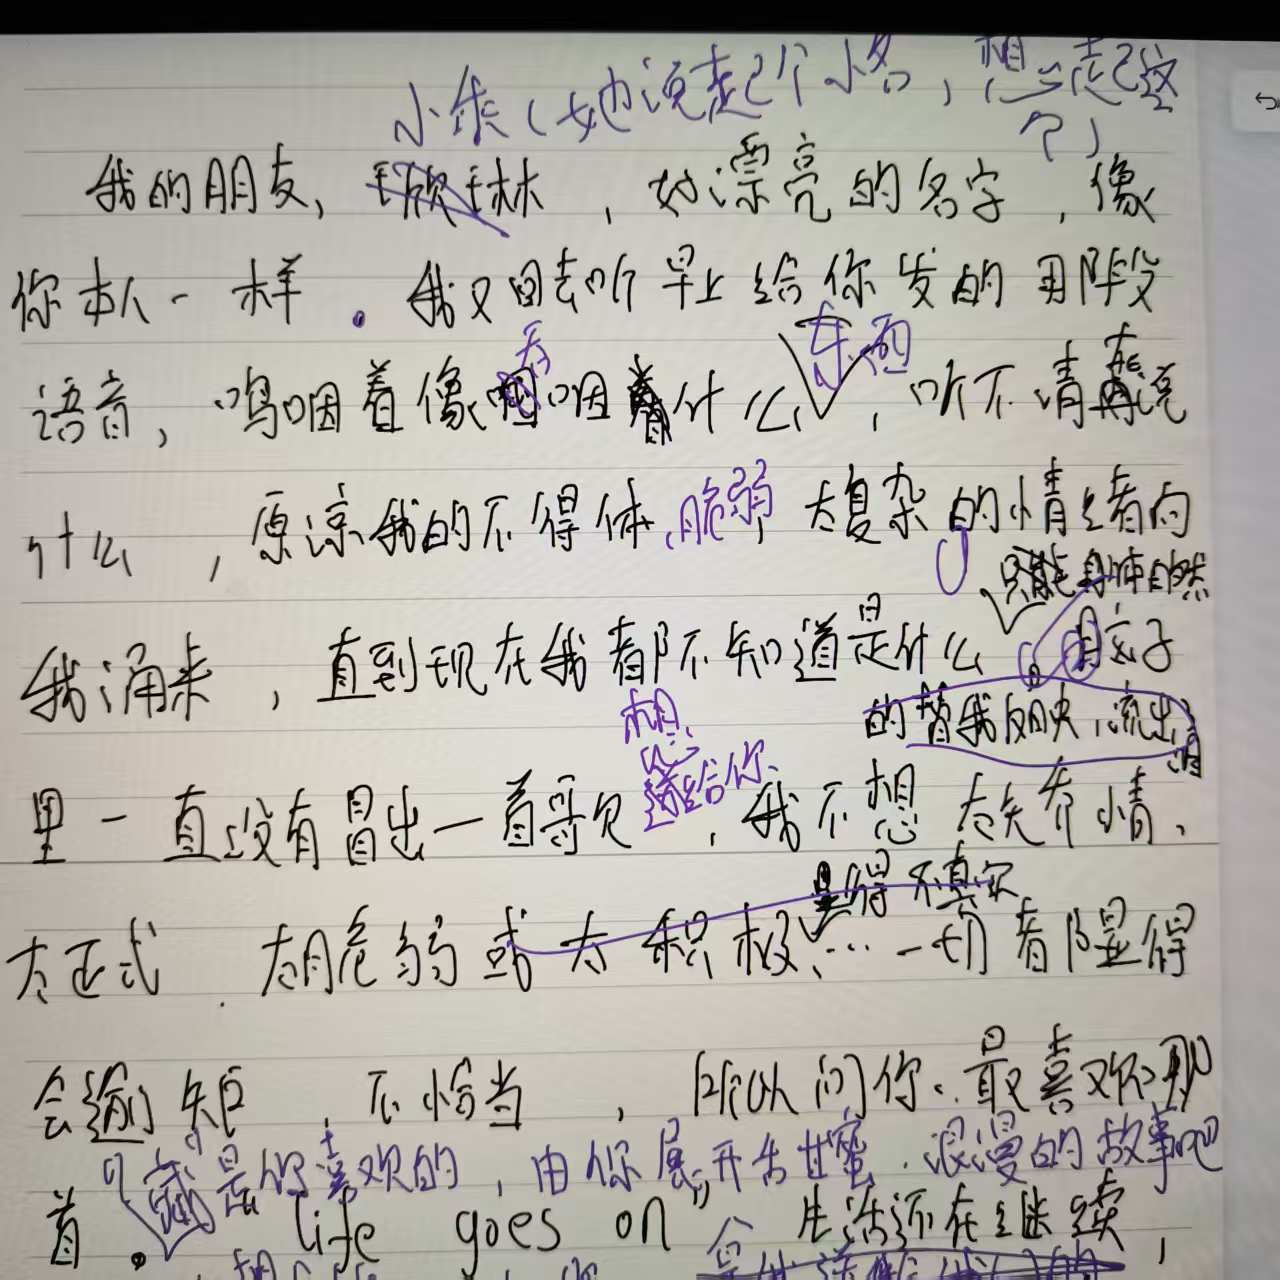 小乖(她说起个小名,想起这
个)
我的朋友,,好漂亮的名字,像
你本人一样。我又回去听早上给你发的那段
语音,呜咽着像吞咽着什么东西,听不清在说
什么,原谅我的不得体、脆弱,太复杂的情绪向
只能身体自然
我涌来,直到现在我都不知道是什么。脑子
的替我反映,流出泪
想
送给你
里一直没有冒出一首哥欠,我不想太矢乔情、
显得不真实
太正式、太脆弱或太积极……一切都显得
会逾矩,不恰当,所以问你最喜欢那
就是你喜欢的,由你展开去甜蜜、浪漫的故事吧
首。"life goes on"生活还在继续,